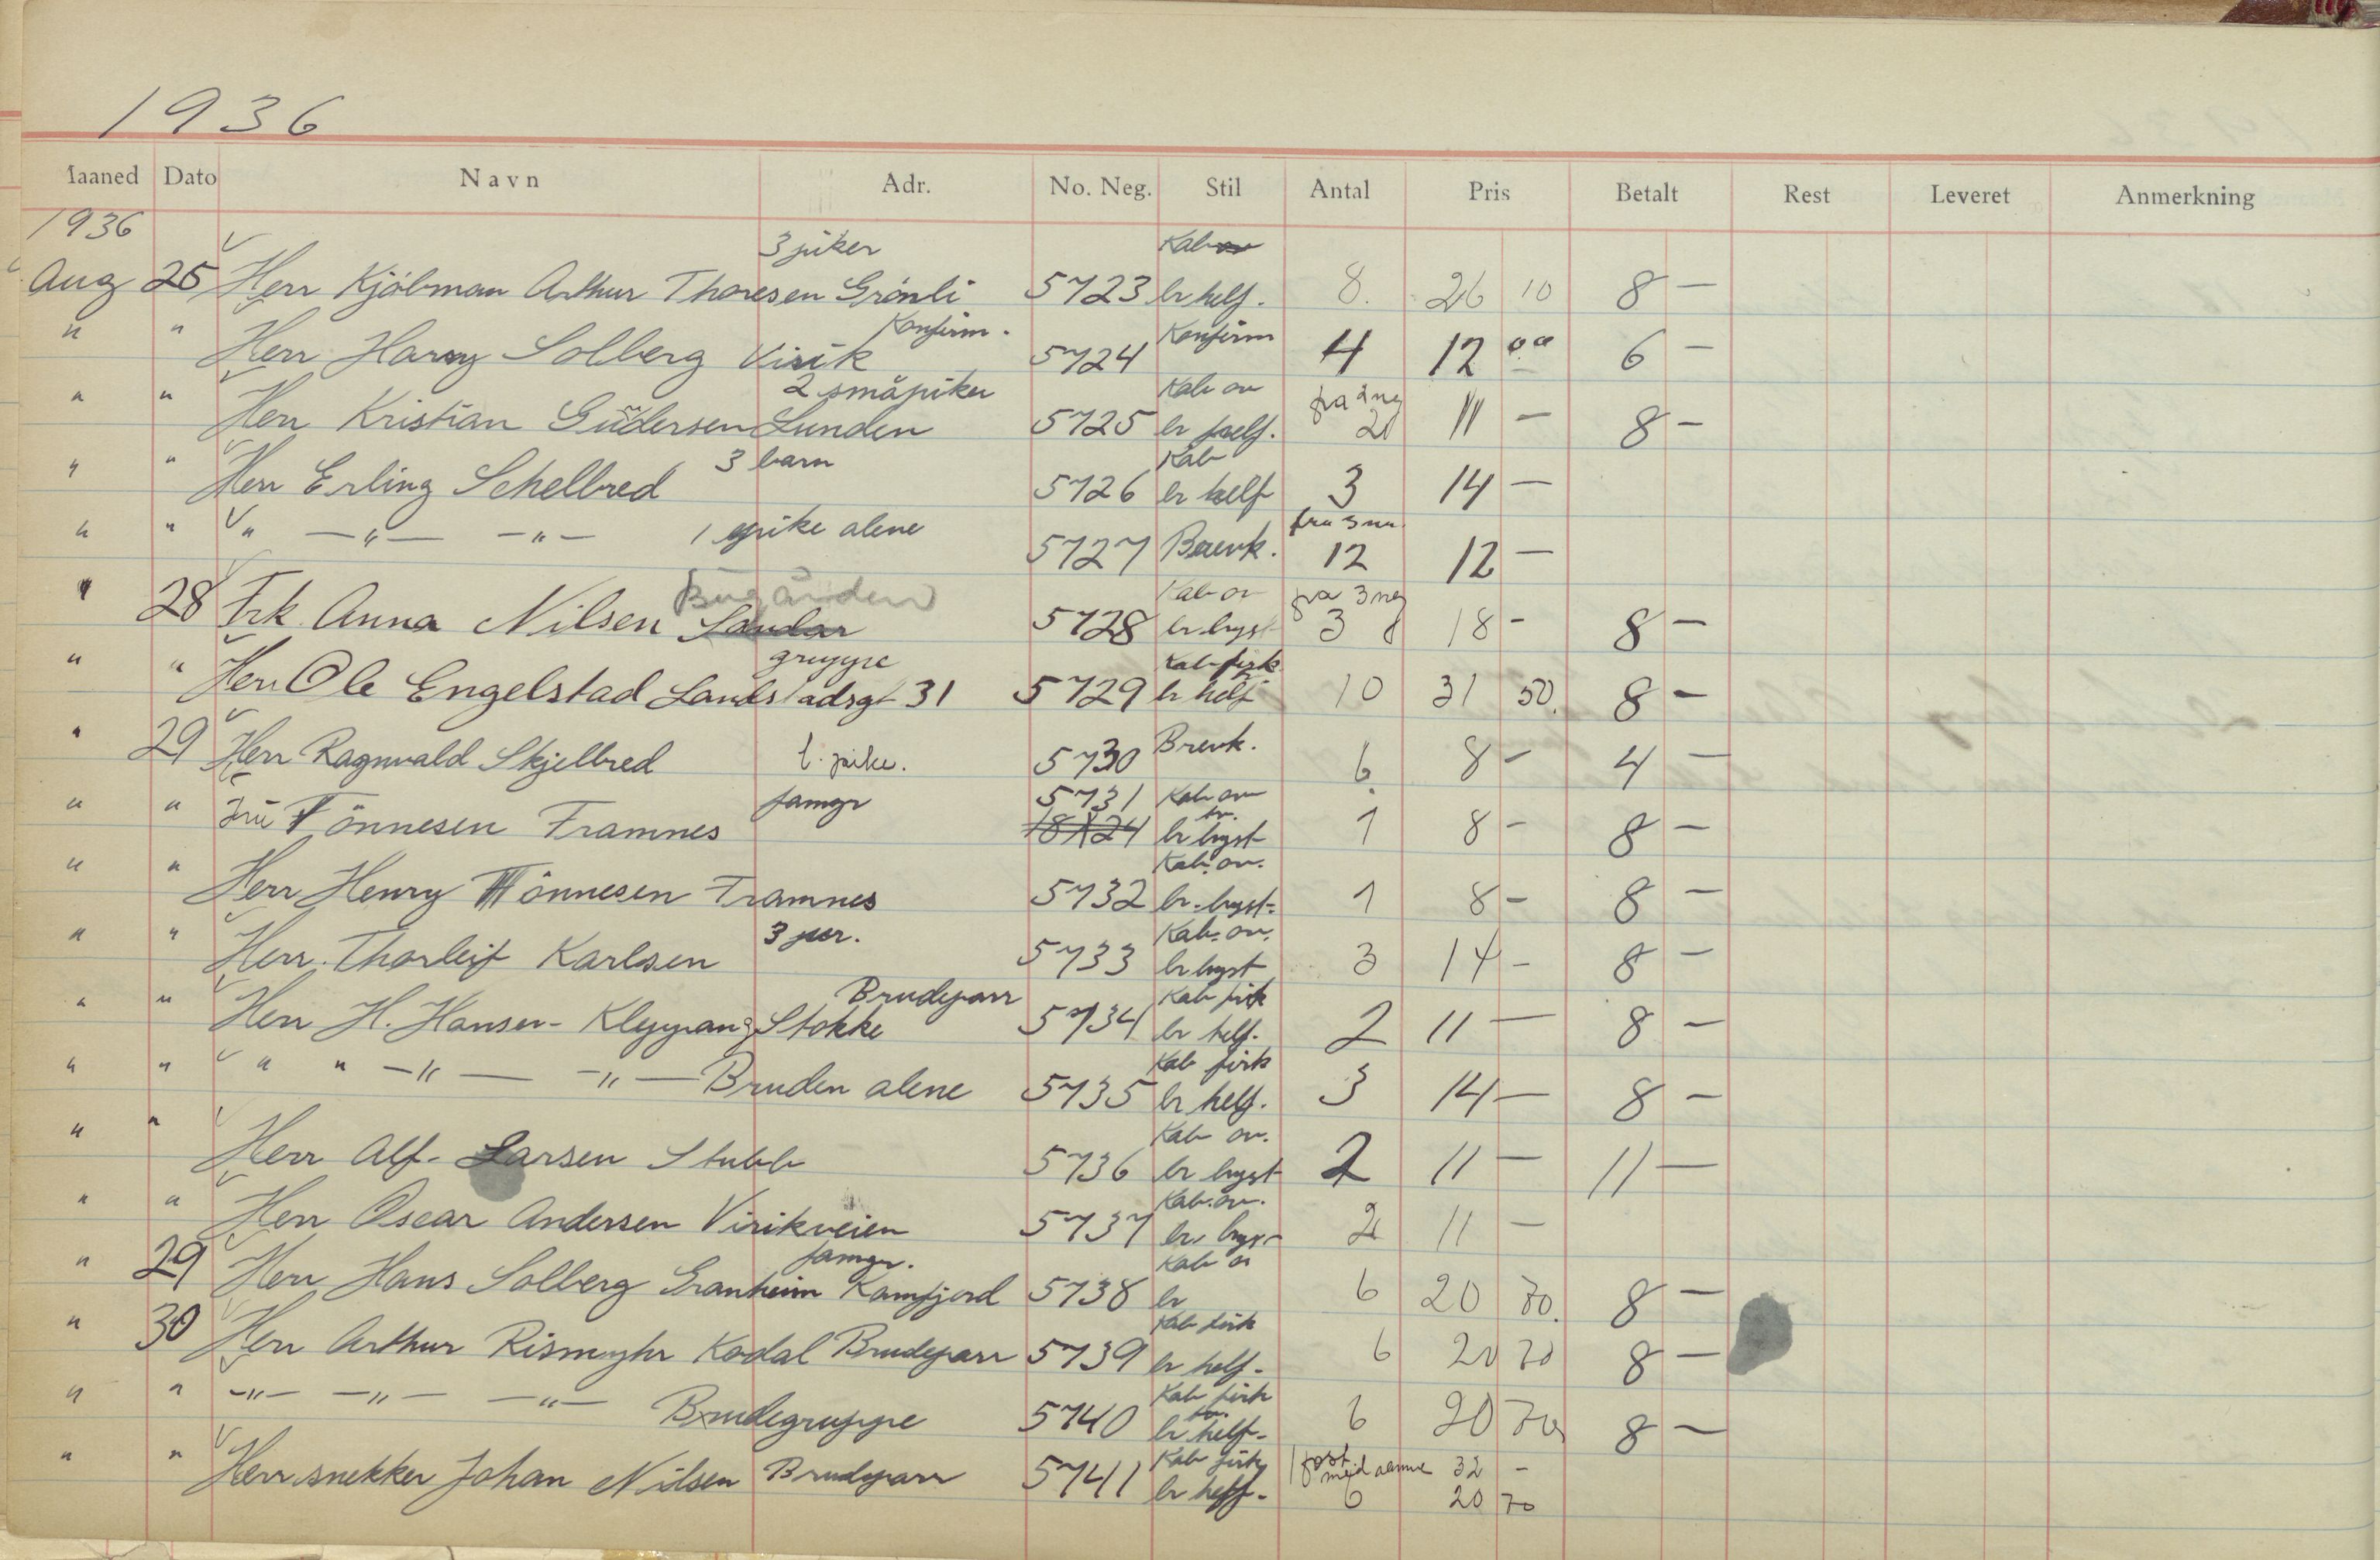 1936
Maaned Dato Navn Adr. No. Neg. Stil Antal Pris Betalt Rest Leveret Anmerkning
1936
3 piker Kab
Aug 25 Herr Kjöbman Arthur Thoresen Grönli 5723 br helf. 8. 26 10 8 —
Konfirm. Konfirm
" " Herr Harry Solberg Virik 5724 4 12 00 6 —
2 småpiker Kab ov fra 2 neg
" " Herr Kristian Gudersen Lunden 5725 br helf. 2 11 — 8 —
3 barn Kab
" " Herr Erling Schelbred 5726 br helf 3 14 —
" " " —"— —"— 1 pike alene 5727 Brevk. fra 3 neg 12 12 —
Bugården Kab ov fra 3 neg
" 28 Frk. Anna Nilsen Sandar 5728 br byst 3 18 - 8 —
gruppe Kab fisk
" " Herr Ole Engelstad Landstadsgt 31 5729 br helf 10 31 50. 8 —
" 29 Herr Ragnvald Skjelbred 1. pike. 5730 Brevk. 6. 8 - 4 —
famgr 5731 Kab ov
" " Fru Tönnesen Framnes 18124 br byst 1 8 - 8 —
Kab. ov.
" " Herr Henry Tönnesen Framnes 5732 br. byst. 1 8 - 8 —
3 per. Kab. ov.
" " Herr. Thorleif Karlsen 5733 br byst 3 14 - 8 —
Brudeparr Kab fisk
" " Herr H. Hansen- Stokke 5734 br helf. 2 11 — 8 —
Kab fisk
" " " " —"— —"— Bruden alene 5735 br helf. 3 14 — 8 —
Kab ov.
" " Herr Alf. Larsen Stubb 5736 br byst 2 11 — 11 —
Kab. ov.
" " Herr Oscar Andersen Virikveien 5737 br. byst 2 11 —
famgr. Kab ov
" 29 Herr Hans Solberg Granheim Kamfjord 5738 br 6 20 70. 8 —
Kab fisk
" 30 Herr Arthur Rismyhr Kodal Brudeparr 5739 br helf. 6 20 70 8 —
Kab fisk
" " —"— —"— —"— Brudegruppe 5740 br helf. 6 20 70 8 —
Kab fisk 32 -
" " Herr snekker Johan Nilsen Brudeparr 5741 br helf. 6 20 70